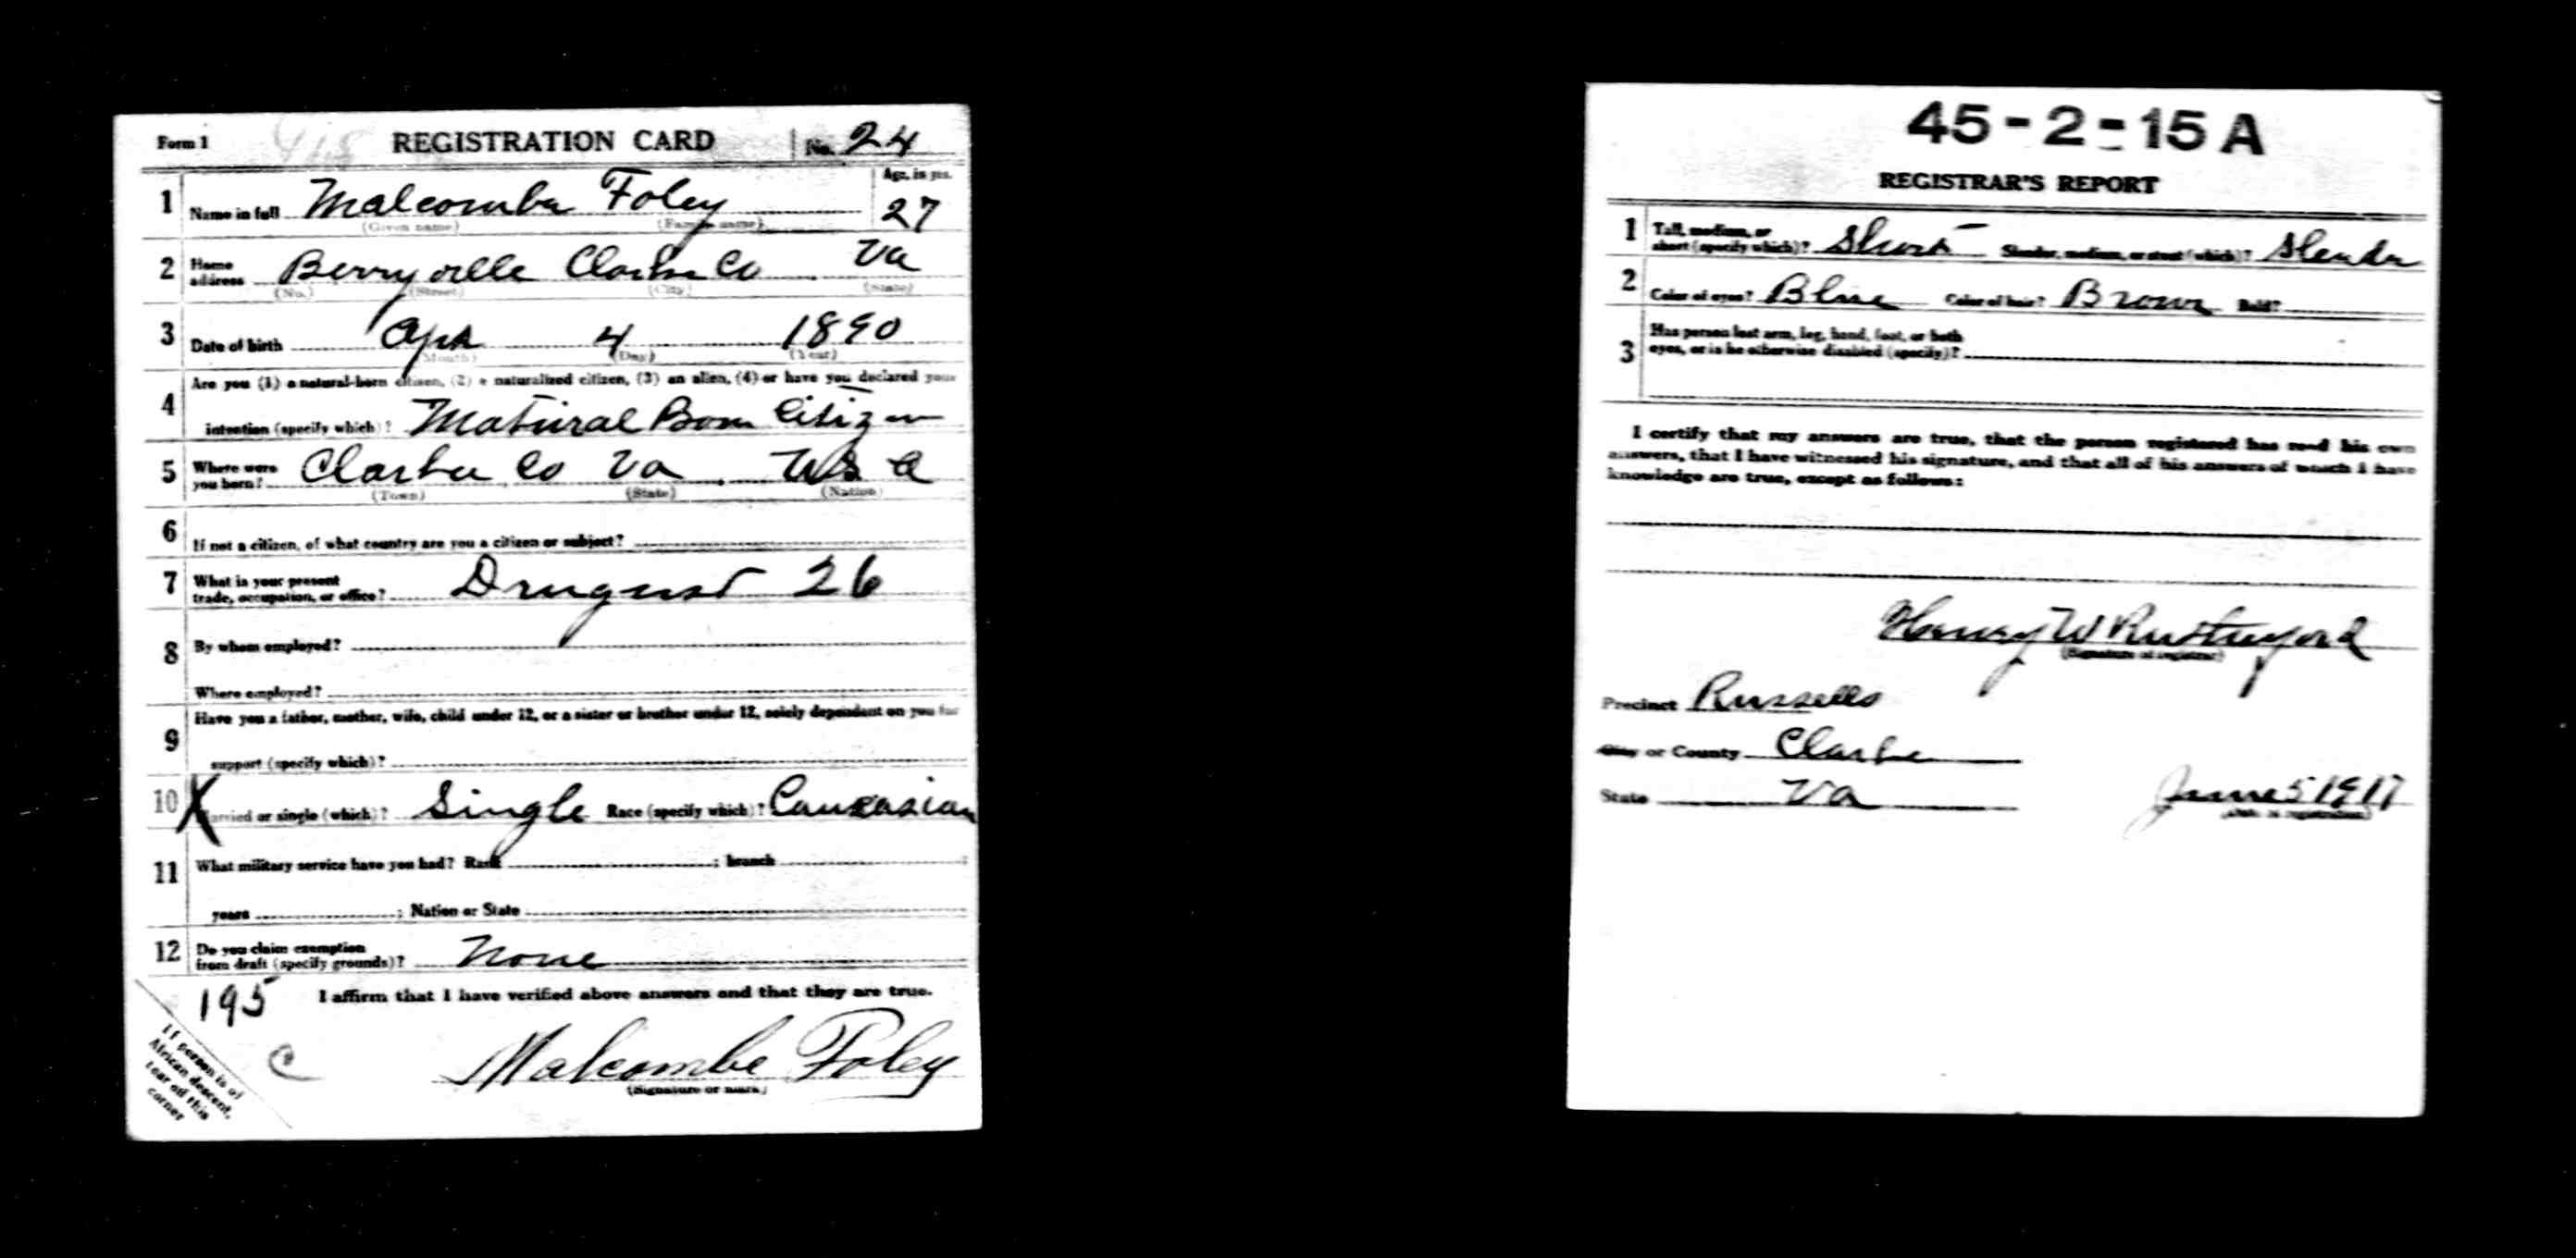 Form 1 REGISTRATION CARD No. 24
1 Name in full Malcombe Foley Age, in yrs. 27
(Given name) (Family name)
2 Home address Berryville Clarke Co Va
(No.) (Street) (City) (State)
3 Date of birth Apr 4 1890
(Month) (Day) (Year)
4 Are you (1) a natural-born citizen, (2) a naturalized citizen, (3) an alien, (4) or have you declared your
intention (specify which)? Natural Born Citizen
5 Where were you born? Clarke Co Va U S A
(Town) (State) (Nation)
6 If not a citizen, of what country are you a citizen or subject?
7 What is your present trade, occupation, or office? Drugist 26
8 By whom employed?
Where employed?
9 Have you a father, mother, wife, child under 12, or a sister or brother under 12, solely dependent on you for
support (specify which)?
10 X Married or single (which)? Single Race (specify which)? Caucasian
11 What military service have you had? Rank ; branch ;
years ; Nation or State
12 Do you claim exemption from draft (specify grounds)? None
195 I affirm that I have verified above answers and that they are true.
C
Malcombe Foley
(Signature or mark)
If person is of
African descent,
tear off this
corner
45-2-15 A
REGISTRAR'S REPORT
1 Tall, medium, or short (specify which)? Short Slender, medium, or stout (which)? Slender
2 Color of eyes? Blue Color of hair? Brown Bald?
3 Has person lost arm, leg, hand, foot, or both
eyes, or is he otherwise disabled (specify)?
I certify that my answers are true, that the person registered has read his own
answers, that I have witnessed his signature, and that all of his answers of which I have
knowledge are true, except as follows:
Henry W Rutherford
(Signature of registrar)
Precinct Russells
City or County Clarke
State Va June 5 1917
(Date of registration)